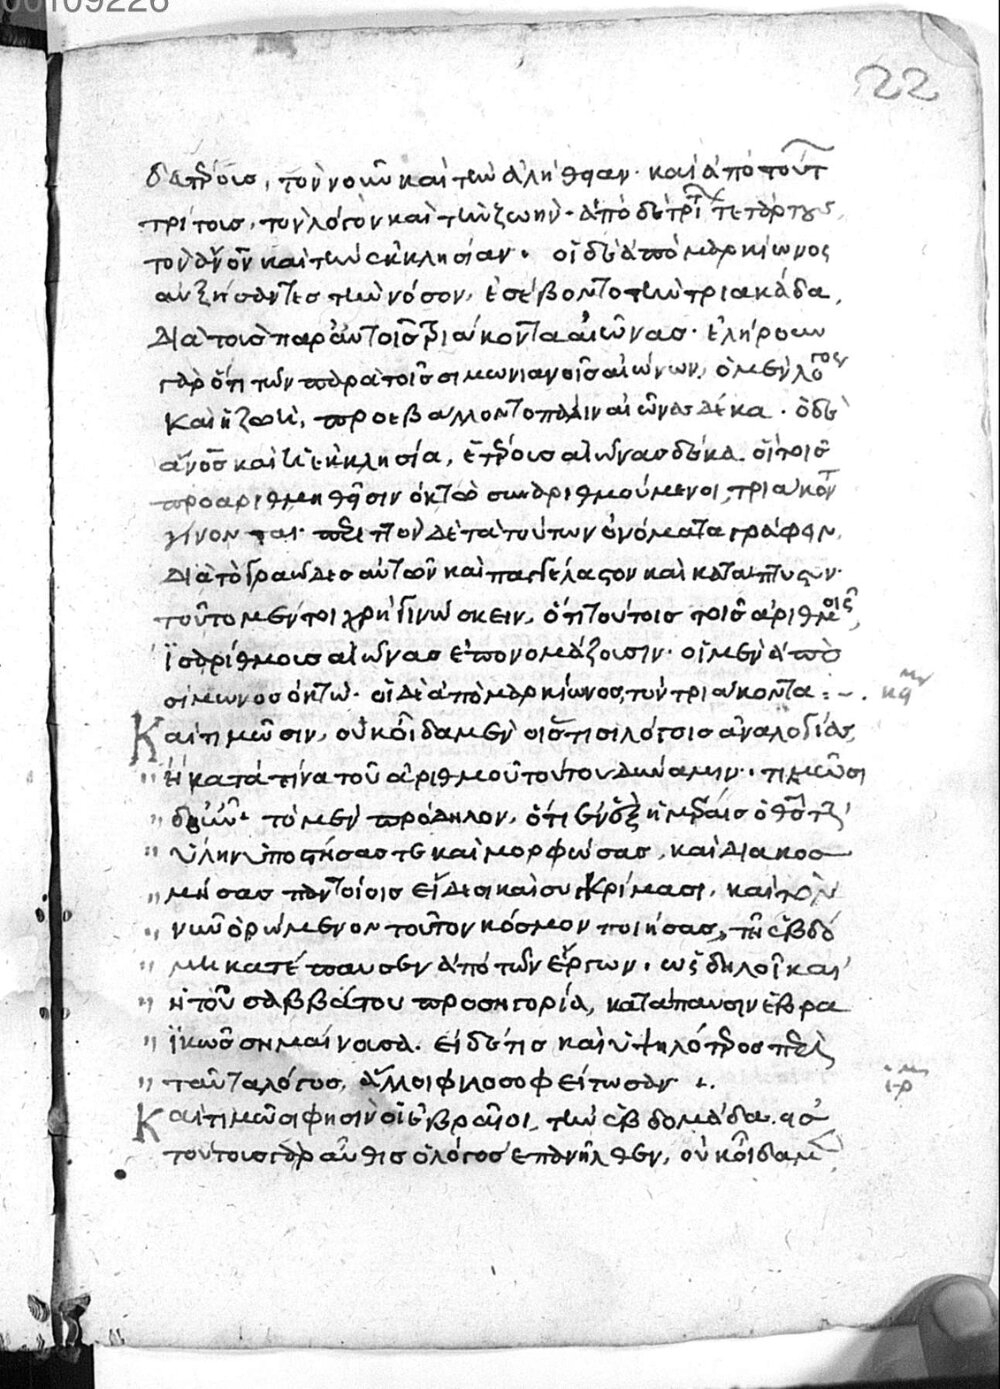 00109226
22
δευτέροις, τὸν νοῦν καὶ τὴν ἀλήθειαν· καὶ ἀπὸ τούτ
τρίτοις, τὸν λόγον καὶ τὴν ζωήν· ἀπὸ δὲ τρί τετάρτους,
τὸν ἄνον καὶ τὴν ἐκκλησίαν· οἱ δὲ ἀπὸ μαρκίωνος
αὐξήσαντες τὴν νόσον, ἐσέβοντο τὴν τριακάδα,
διὰ τοὺς παρ' αὐτοῖς τριάκοντα αἰῶνας· ἐλήρουν
γὰρ ὅτι τῶν παρὰ τοῖς σιμωνιανοῖς αἰώνων, ὁ μὲν λόγος
καὶ ἡ ζωὴ, προεβάλλοντο πάλιν αἰῶνας δέκα· ὁ δὲ
ἄνος καὶ ἡ ἐκκλησία, ἑτέρους αἰῶνας δέκα. οἳ τοῖς
προαριθμηθεῖσιν ὀκτὼ συναριθμούμενοι, τριάκοντ
γίνονται· περιττὸν δὲ τὰ τούτων ὀνόματα γράφειν,
διὰ τὸ γραῶδες αὐτῶν καὶ παγγέλαστον καὶ κατάπτυστον·
τοῦτο μέντοι χρὴ γινώσκειν, ὅτι τούτοις τοῖς ἀριθμοῖς,
ἰσαρίθμους αἰῶνας ἐπονομάζουσιν· οἱ μὲν ἀπὸ
σίμωνος ὀκτώ· οἱ δὲ ἀπὸ μαρκίωνος, τὸν τριάκοντα :~.
Καὶ τιμῶσιν, οὐκ οἶδα μὲν οἷς τισι λόγοις ἀναλογίας,
" ἢ κατὰ τίνα τοῦ ἀριθμοῦ τούτου δύναμιν· τιμῶσι
" δ' οὖν· τὸ μὲν πρόδηλον, ὅτι ἐν ἓξ ἡμέραις ὁ θς τὴν
" ὕλην ὑποστήσας τε καὶ μορφώσας, καὶ διακοσ
" μήσας παντοίοις εἴδεσι καὶ συγκρίμασι, καὶ τὸν
" νῦν ὁρώμενον τοῦτον κόσμον ποιήσας, τῇ ἑβδό
" μῃ κατέπαυσεν ἀπὸ τῶν ἔργων, ὡς δηλοῖ καὶ
" ἡ τοῦ σαββάτου προσηγορία, κατάπαυσιν ἑβρα
" ϊκῶς σημαίνουσα. εἰ δέ τις καὶ ὑψηλότερος περὶ
" ταῦτα λόγος, ἄλλοι φιλοσοφείτωσαν :.
Καὶ τιμῶσι φησὶν οἱ ἑβραῖοι, τὴν ἑβδομάδα. εἰς
τούτοις γὰρ αὖθις ὁ λόγος ἐπανῆλθεν, οὐκ οἶδα μὲν